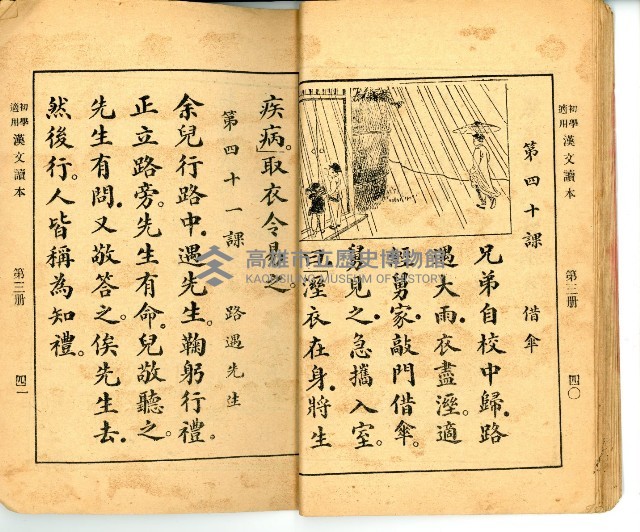 初學適用 漢文讀本 第三册 四〇
第四十課 借傘
兄弟自校中歸路
遇大雨衣盡溼適
經舅家敲門借傘
舅見之急攜入室
曰溼衣在身將生
疾病取衣令易之
第四十一課 路遇先生
余兒行路中遇先生鞠躬行禮
正立路旁先生有命兒敬聽之
先生有問又敬答之俟先生去
然後行人皆稱為知禮
初學適用 漢文讀本 第三册 四一
高雄市立歷史博物館
KAOHSIUNG MUSEUM OF HISTORY